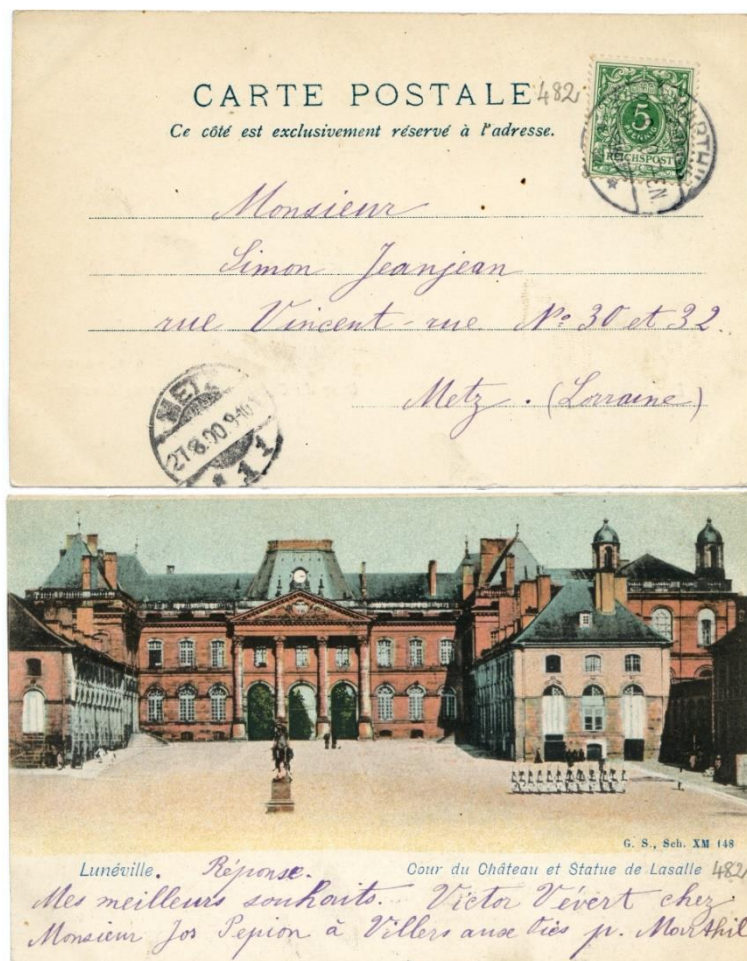 CARTE POSTALE 482
Ce côté est exclusivement réservé à l'adresse.
5
REICHSPOST
Monsieur
Simon Jeanjean
rue Vincent-rue No 30 et 32.
Metz. (Lorraine)
METZ
27.8.00.9-10
11
G. S., Sch. XM 148
Lunéville. Réponse. Cour du Château et Statue de Lasalle 482
Mes meilleurs souhaits. Victor Vévert chez
Monsieur Jos Pepion à Villers aux Oies p. Marthil